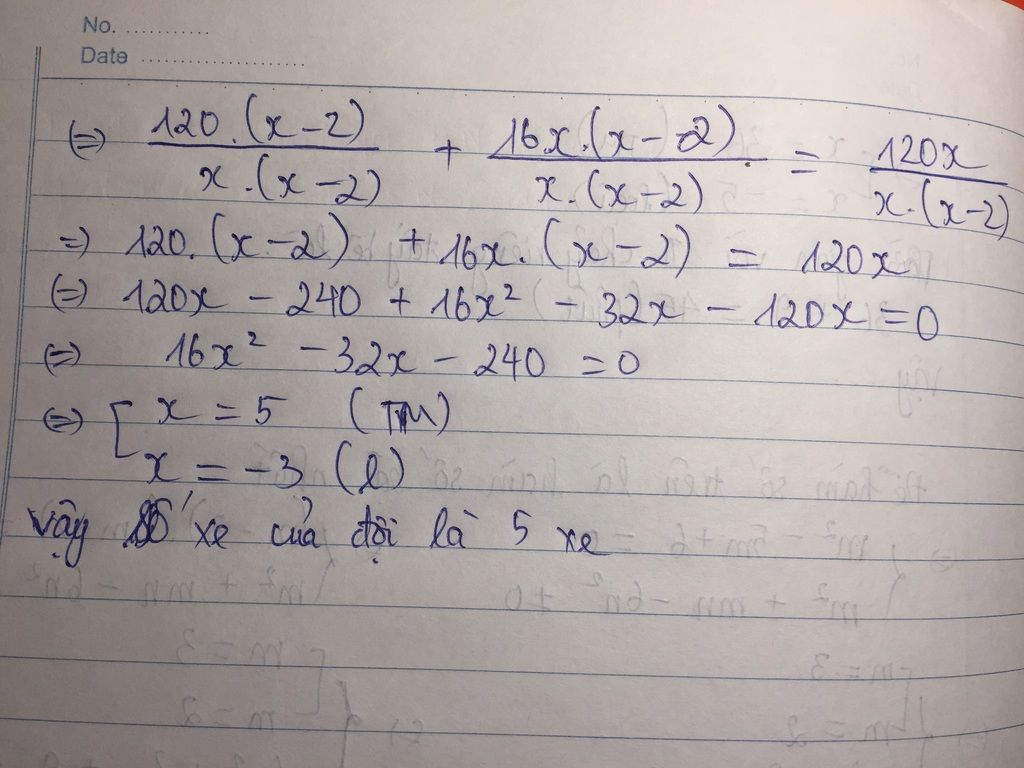 No. ...........
Date .......................
(=) 120.(x-2)/x.(x-2) + 16x.(x-2)/x.(x-2) = 120x/x.(x-2)
=) 120.(x-2) + 16x.(x-2) = 120x
(=) 120x - 240 + 16x² - 32x - 120x = 0
(=) 16x² - 32x - 240 = 0
(=) [ x = 5 (TM)
x = -3 (l)
Vậy số xe của đội là 5 xe